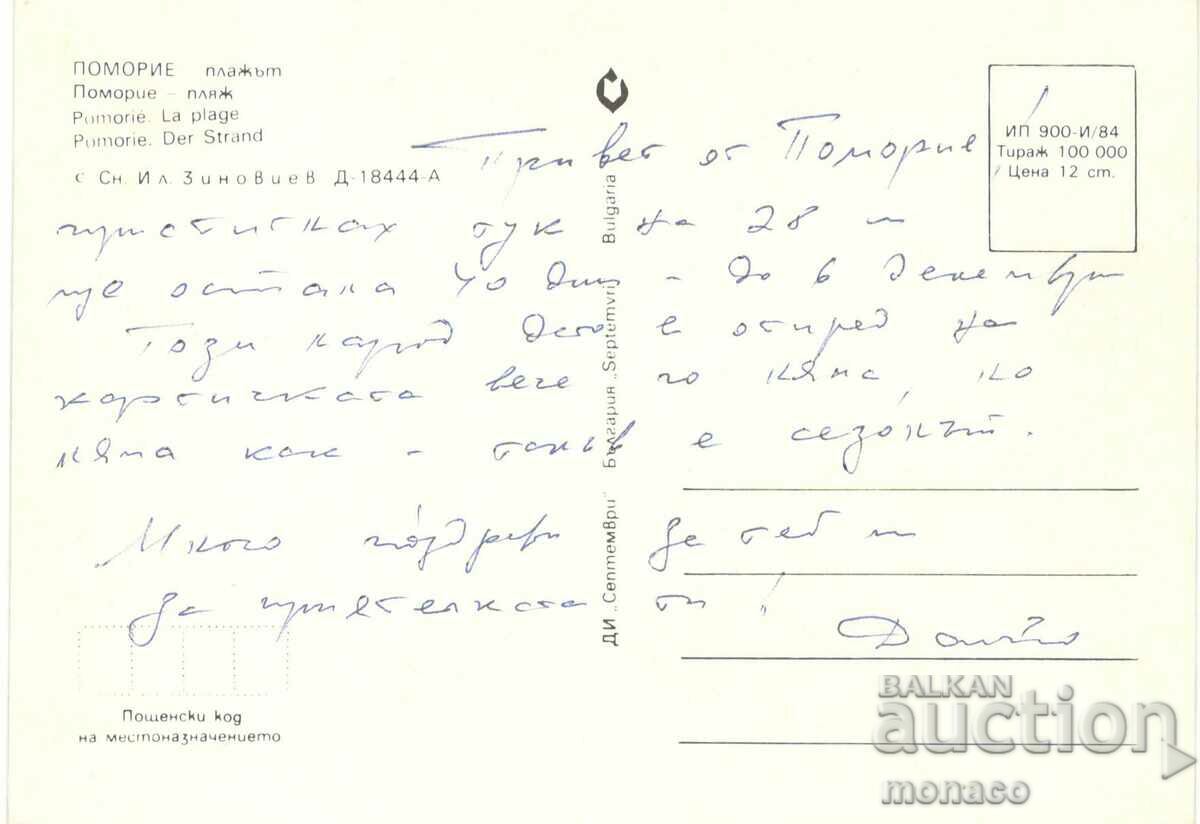 ПОМОРИЕ плажът
Поморие – пляж
Pomorie. La plage
Pomorie. Der Strand
с Сн. Ил. Зиновиев Д-18444-А
ИП 900-И/84
Тираж 100 000
Цена 12 ст.
Привет от Поморие
пристигнах тук на 28 и
ще остана 40 дни – до 6 декември
Този народ дето е отпред на
картичката вече го няма, но
няма как – такъв е сезонът.
Много поздрави за теб и
за приятелката ти!
ДИ „Септември" България „Septemvrij" Bulgaria
Пощенски код
на местоназначението
BALKAN
auction
monaco